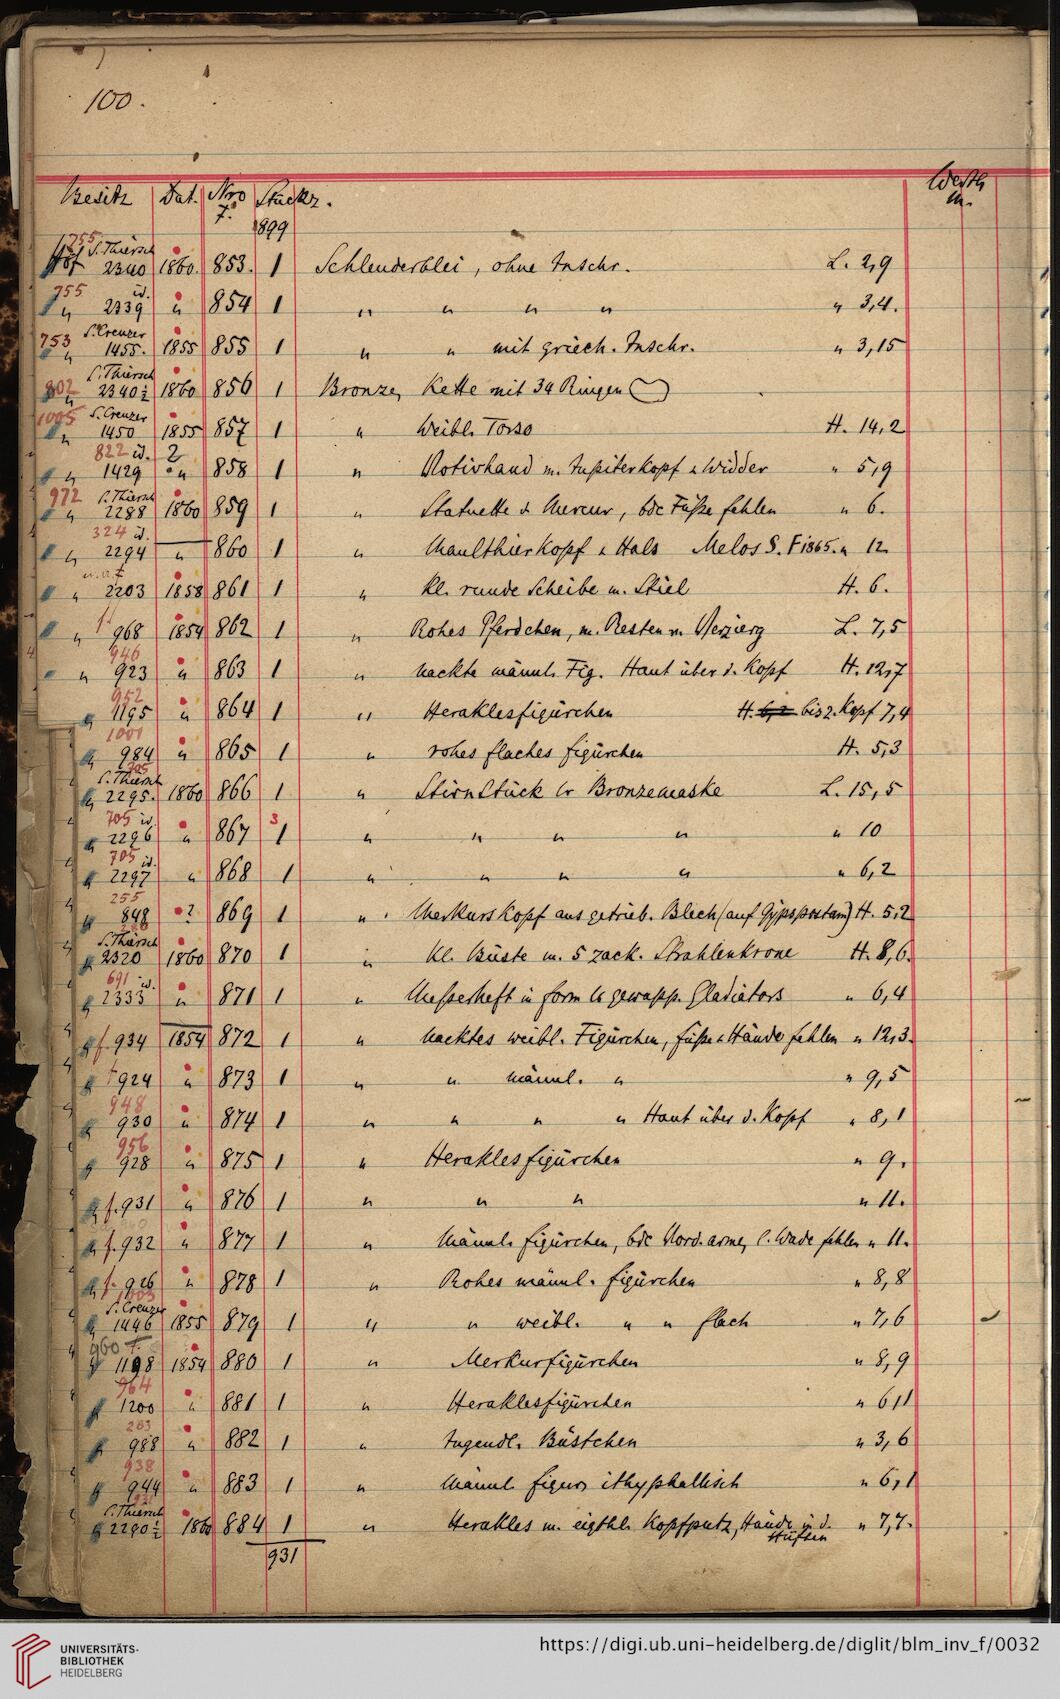 100.
Besitz Dat. Nro Stückz. Werth
F. m.
899
755 S. Thiersch
Hof 2340 1860. 853. 1 Schleuderblei, ohne Inschr. L. 2,9
755 id.
" 2339 " 854 1 " " " " " 3,4.
753 S. Creuzer
" 1455. 1855 855 1 " " mit griech. Inschr. " 3,15
802 S. Thiersch
" 2340½ 1860 856 1 Bronze, Kette mit 34 Ringen
1005 S. Creuzer
" 1450 1855 857 1 " Weibl. Torso H. 14,2
822 id. 2
" 1429 " 858 1 " Votivhand m. Jupiterkopf u. Widder " 5,9
972 S. Thiersch
" 2288 1860 859 1 " Statuette d. Mercur, bde Füße fehlen " 6.
324 id.
" 2294 " 860 1 " Maulthierkopf u. Hals Melos S. F 1865. " 12
" 2203 1858 861 1 " Kl. runde Scheibe m. Stiel H. 6.
" 968 1854 862 1 " Rohes Pferdchen, m. Resten v. Verzierg L. 7,5
946
" 923 " 863 1 " nackte männl. Fig. Haut über d. Kopf H. 12,7
952
" 1195 " 864 1 " Heraklesfigürchen H. bis z. Kopf 7,4
1001
" 984 " 865 1 " rohes flaches figürchen H. 5,3
305
S. Thiersch
" 2295. 1860 866 1 " Stirnstück er Bronzemaske L. 15,5
705 id. 3
" 2296 " 867 1 " " " " " 10
705 id.
" 2297 " 868 1 " " " " " 6,2
255
" 848 ? 869 1 " Merkurskopf aus getrieb. Blech (auf Gypspostam) H. 5,2
S. Thiersch
" 2320 1860 870 1 " Kl. Büste m. 5 zack. Strahlenkrone H. 8,6.
691 id.
" 2333 " 871 1 " Messerheft in form es gewapp. Gladiators " 6,4
" f. 934 1854 872 1 " Nacktes weibl. Figürchen, füße u. Hände fehlen " 12,3.
" 924 " 873 1 " " männl. " " 9,5
948
" 930 " 874 1 " " " " Haut über d. Kopf " 8,1
956
" 928 " 875 1 " Heraklesfigürchen " 9.
" f. 931 " 876 1 " " " " 11.
" f. 932 " 877 1 " Männl. figürchen, bde Vord. arme, l. Wade fehlen " 11.
" f. 926 " 878 1 " Rohes männl. figürchen " 8,8
1003
S. Creuzer
" 1446 1855 879 1 " " weibl. " " flach " 7,6
960
" 1198 1854 880 1 " Merkurfigürchen " 8,9
964
" 1200 " 881 1 " Heraklesfigürchen " 6,1
263
" 988 " 882 1 " Jugendl. Büstchen " 3,6
938
" 944 " 883 1 " Männl. figur, ithyphallisch " 6,1
S. Thiersch
" 2290½ 1860 884 1 " Herakles m. eigthl. Kopfputz, Hände in d. " 7,7.
Hüften
931
UNIVERSITÄTS-
BIBLIOTHEK
HEIDELBERG
https://digi.ub.uni-heidelberg.de/diglit/blm_inv_f/0032